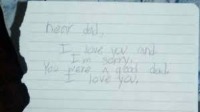 Dear dad,
I love you and
I'm sorry.
You were a good dad.
I love you,